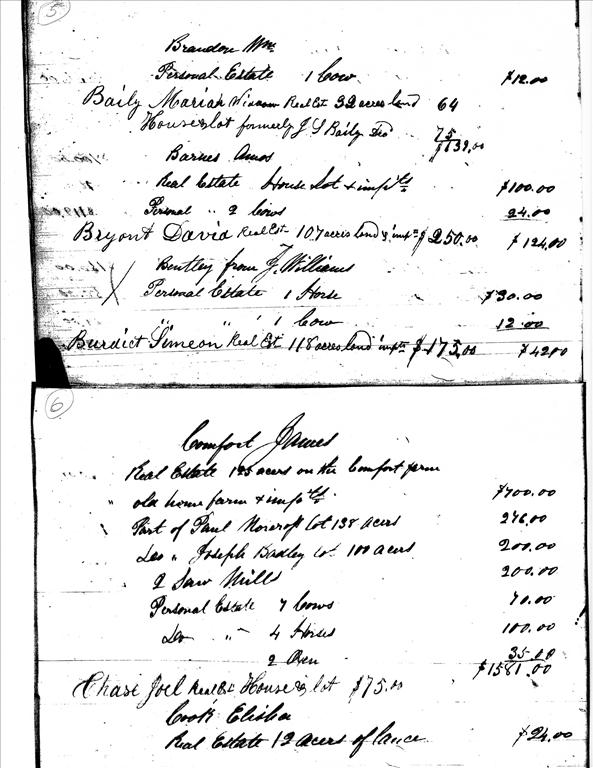 5
Brandon Wm
Personal Estate 1 Cow $12.00
Baily Mariah Real Est 32 acres land 64
House & lot formerly J S Baily Do 75
$139.00
Barnes Amos
Real Estate House Lot & imp'ts $100.00
Personal " 2 Cows 24.00
Bryont David Real Est 107 acres land & imp'ts $250.00 $124.00
Bentley from J. Williams
Personal Estate 1 Horse $30.00
" " 1 Cow 12.00
Burdict Simeon Real Est 118 acres land imp'ts $175.00 $42.00
6
Comfort James
Real Estate 125 acers on the Comfort farm
" old home farm & imp'ts $700.00
Part of Paul Lot 138 Acers 276.00
Do " Joseph Badley Lot 100 acers 200.00
2 Saw Mills 200.00
Personal Estate 7 Cows 70.00
Do " 4 Horses 100.00
2 Oxen 35.00
$1581.00
Chase Joel Real Est House & lot $75.00
Cook Elisha
Real Estate 12 Acers of lance $24.00